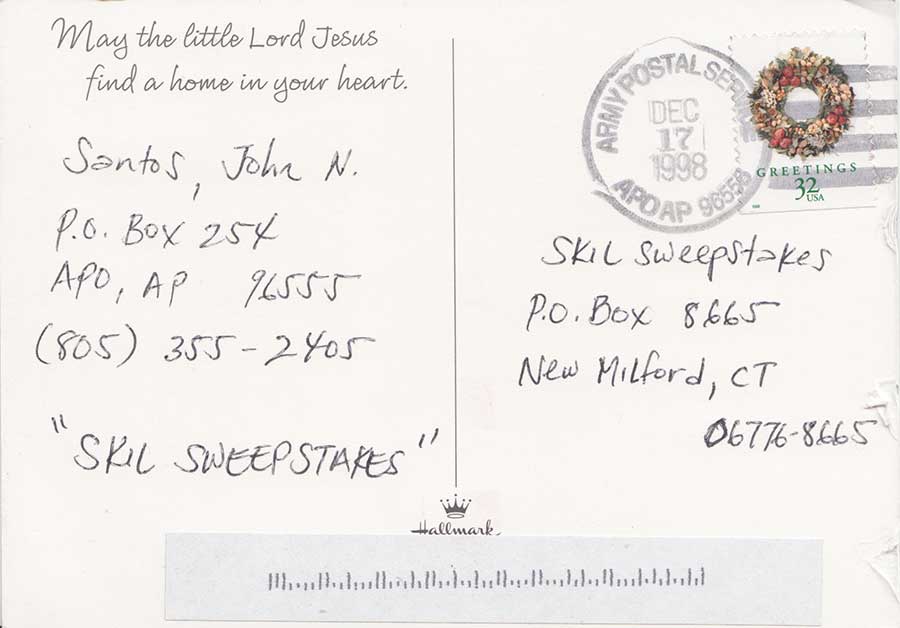 May the little Lord Jesus
find a home in your heart.
Santos, John N.
P.O. Box 254
APO, AP 96555
(805) 355-2405
"SKIL SWEEPSTAKES"
ARMY POSTAL SERVICE
DEC
17
1998
APO AP 96555
GREETINGS
32
USA
Skil Sweepstakes
P.O. Box 8665
New Milford, CT
06776-8665
Hallmark